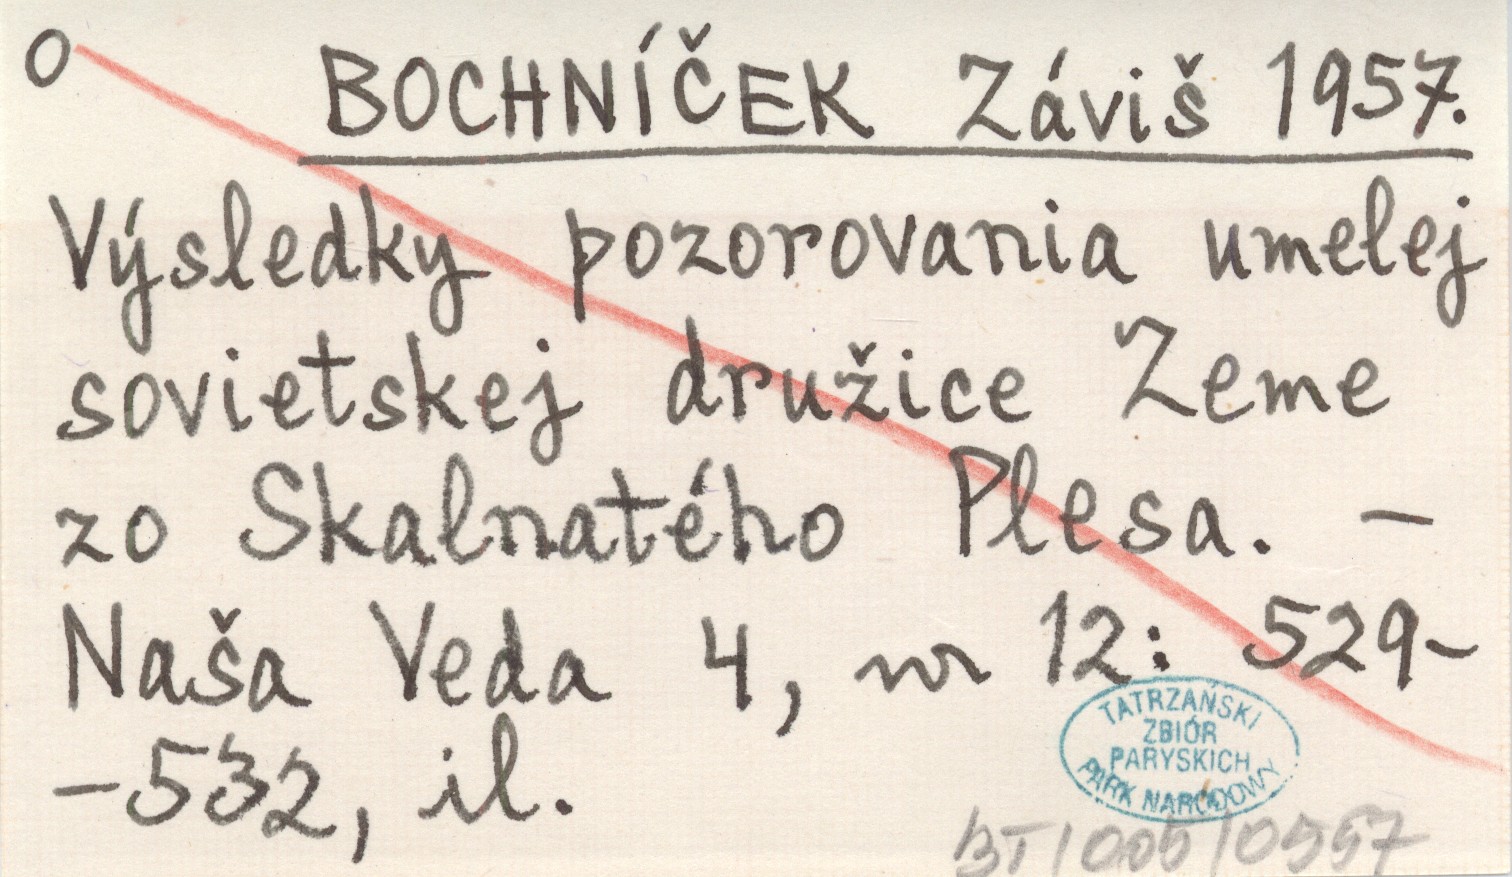 O
BOCHNÍČEK Záviš 1957.
Výsledky pozorovania umelej
sovietskej družice Zeme
zo Skalnatého Plesa. —
Naša Veda 4, nr 12: 529-
-532, il.
TATRZAŃSKI
ZBIÓR
PARYSKICH
PARK NARODOWY
BT/005/0557